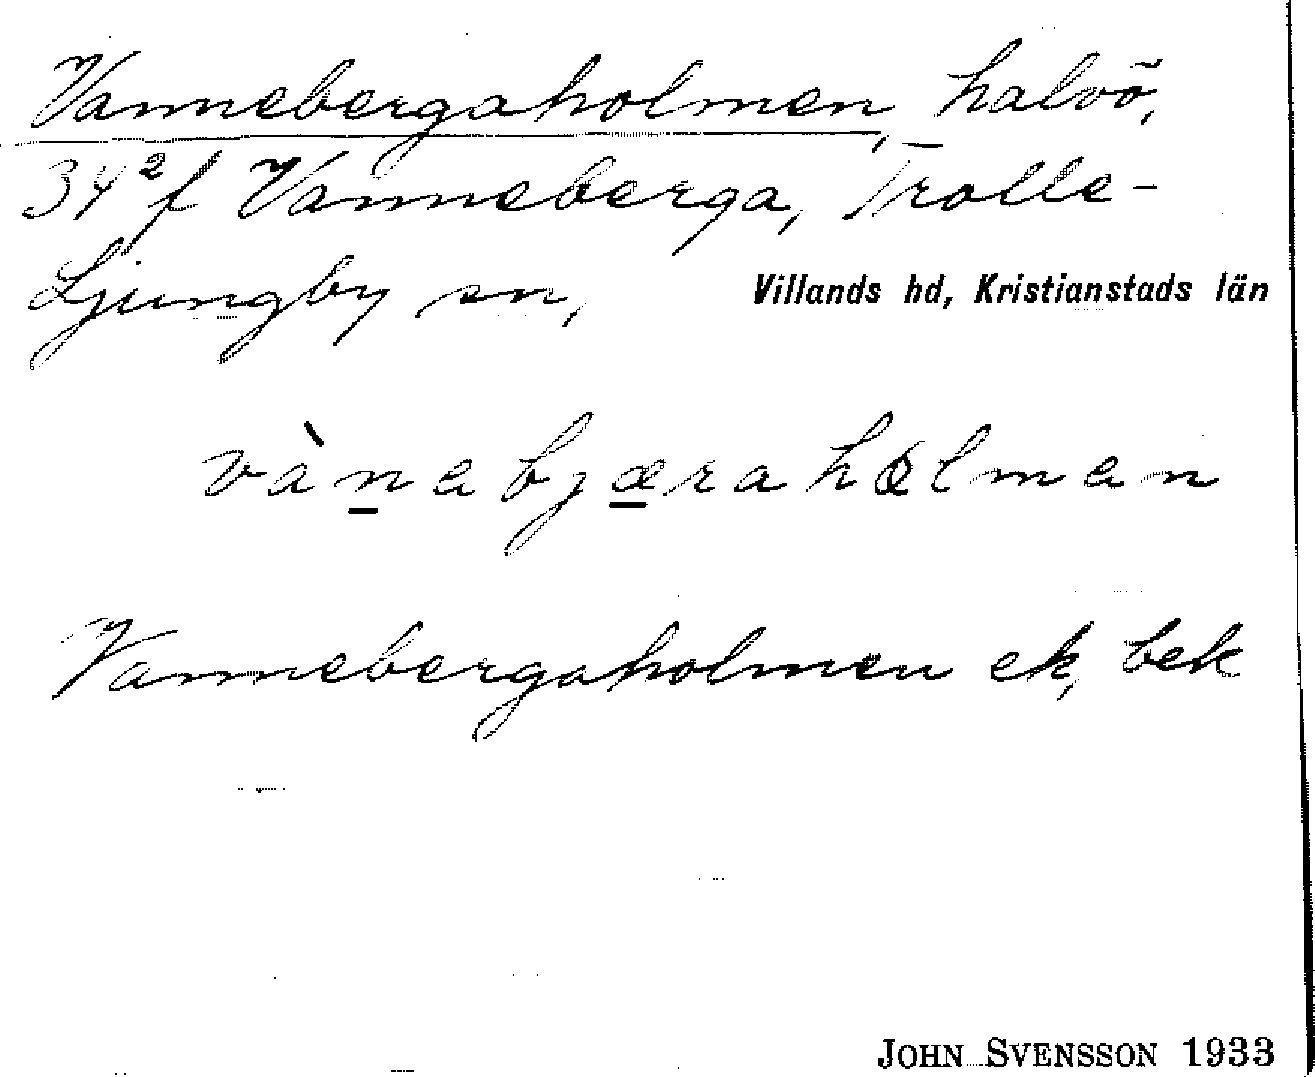 Vannebergaholmen, halvö,
34²f Vanneberga, Trolle-
Ljungby sn, Villands hd, Kristianstads län
vànebjæraholmen
Vannebergaholmen ek, bek
JOHN SVENSSON 1933